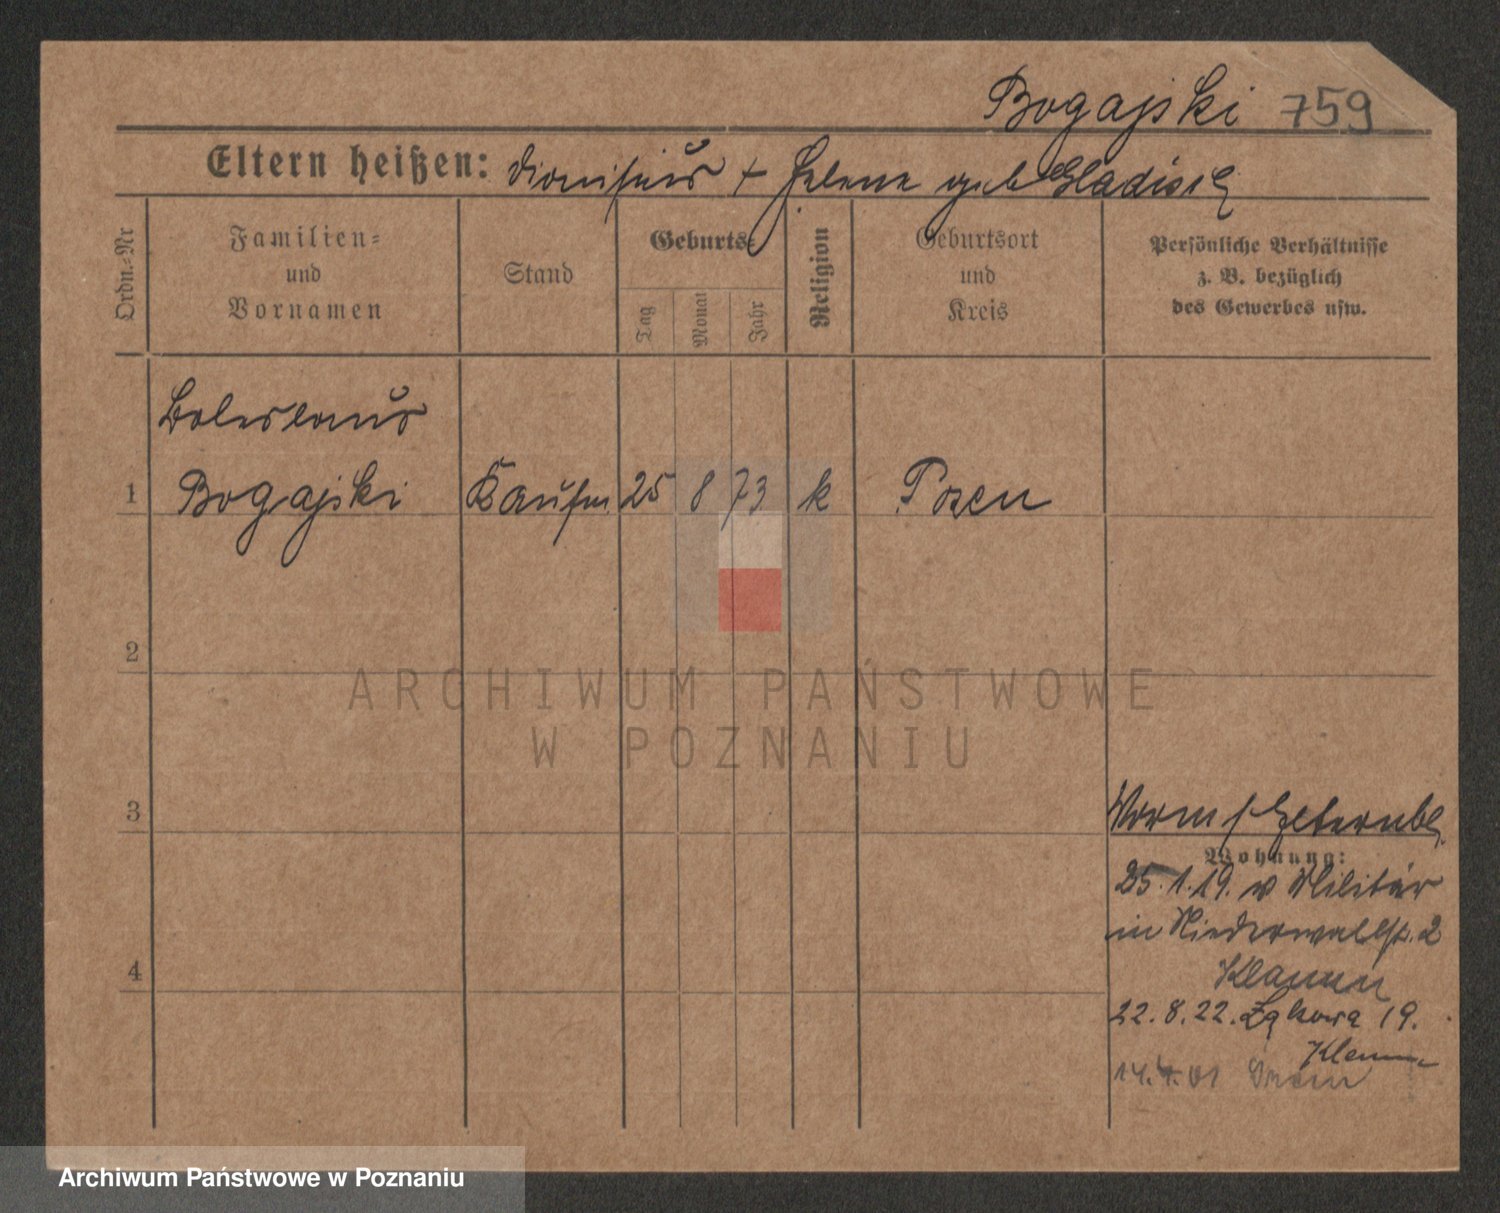 Bogajski 759
Eltern heißen: Dionisius + Helene geb Gladisz
Ordn.=Nr
Familien=
und
Vornamen
Stand
Geburts=
Tag
Monat
Jahr
Religion
Geburtsort
und
Kreis
Persönliche Verhältnisse
z. B. bezüglich
des Gewerbes usw.
Boleslaus
1 Bogajski Kaufm. 25 8 73 k Posen
2
ARCHIWUM PAŃSTWOWE
W POZNANIU
3
Wohnung:
25.1.19. v Militär
in Niederwallstr. 2
4
22.8.22. Łąkowa 19.
Archiwum Państwowe w Poznaniu